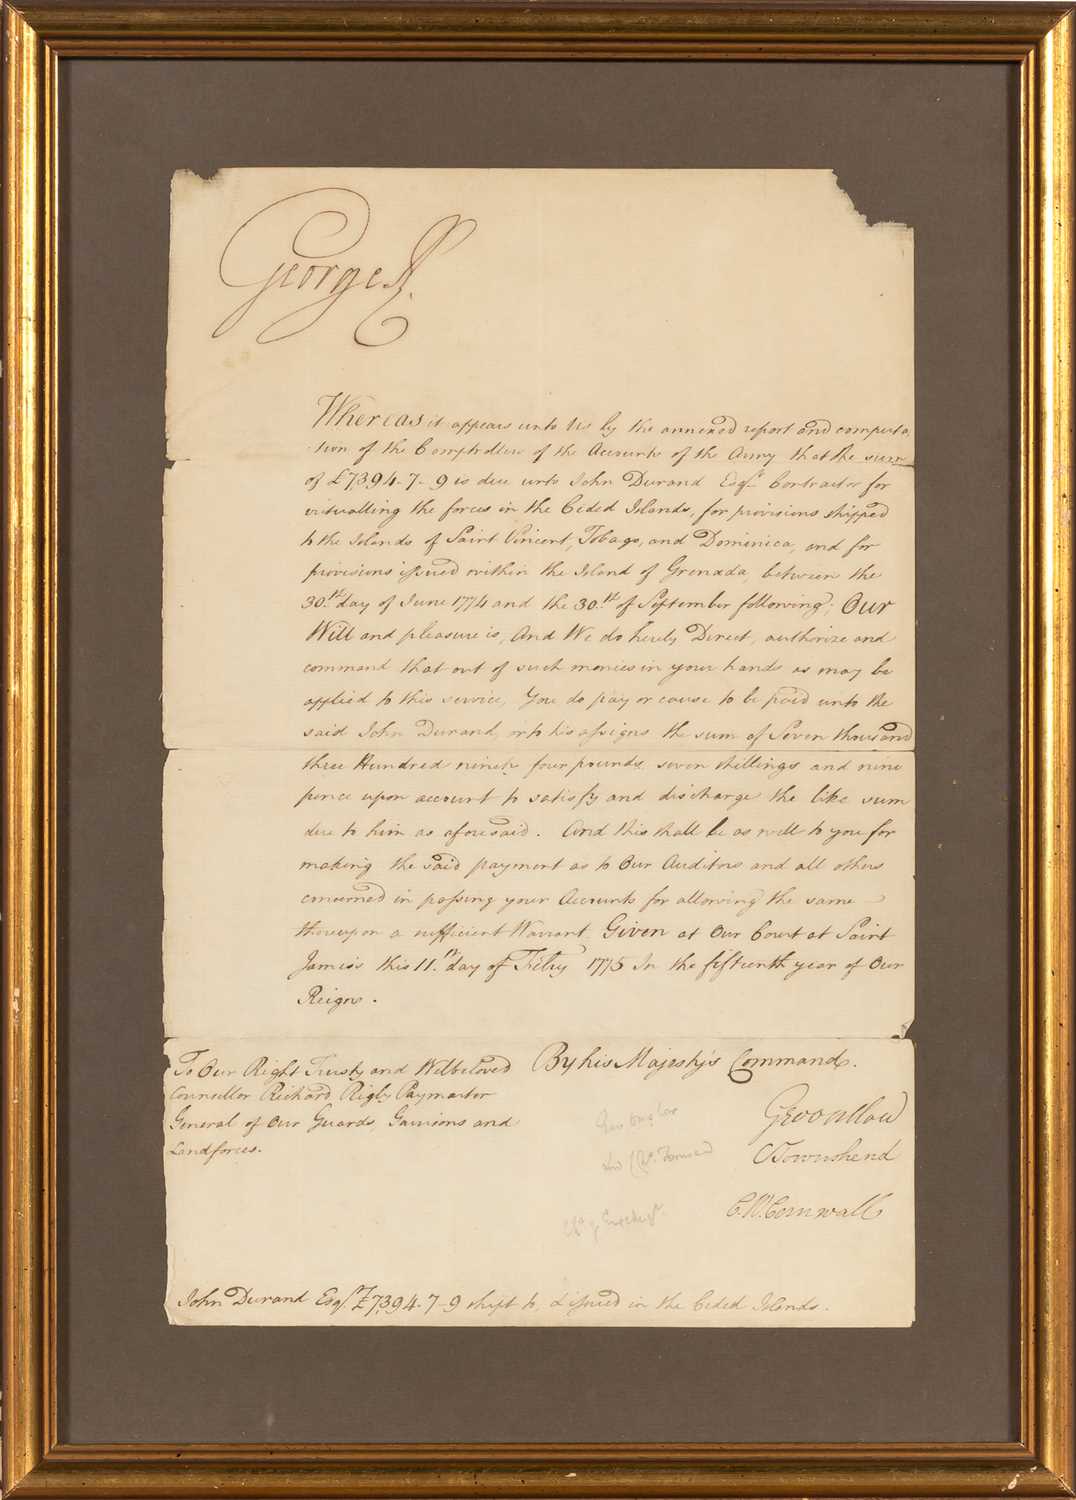 George R.
Whereas it appears unto Us by the annexed report and computa
tion of the Comptrollers of the Accounts of the Army that the sum
of £7394-7-9 is due unto John Durand Esqr. Contractor for
victualling the forces in the Ceded Islands, for provisions shipped
to the Islands of Saint Vincent, Tobago, and Dominica, and for
provisions issued within the Island of Grenada, between the
30.th day of June 1774 and the 30.th of September following; Our
Will and pleasure is, And We do hereby Direct, authorize and
command that out of such monies in your hands as may be
applied to this service, You do pay or cause to be paid unto the
said John Durand, or to his assigns the sum of Seven thousand
three Hundred ninety four pounds seven shillings and nine
pence upon account to satisfy and discharge the like sum
due to him as aforesaid. And this shall be as well to you for
making the said payment as to Our Auditors and all others
concerned in passing your Accounts for allowing the same
thereupon a sufficient Warrant. Given at Our Court at Saint
James's this 11.th day of Febry 1775 In the fifteenth year of Our
Reign.
By his Majesty's Command.
To Our Right Trusty and Welbeloved
Councellor Richard Rigby Paymaster
General of Our Guards, Garrisons and
Landforces.
Geo Onslow
CTownshend
C.W.Cornwall
John Durand Esqr. £7,394-7-9 shipt to, & issued in the Ceded Islands.